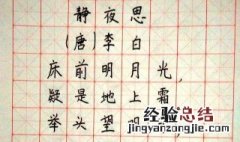 静夜思
(唐)李白
床前明月光,
疑是地上霜,
举头望明
经验总结
jingyanzongjie.com